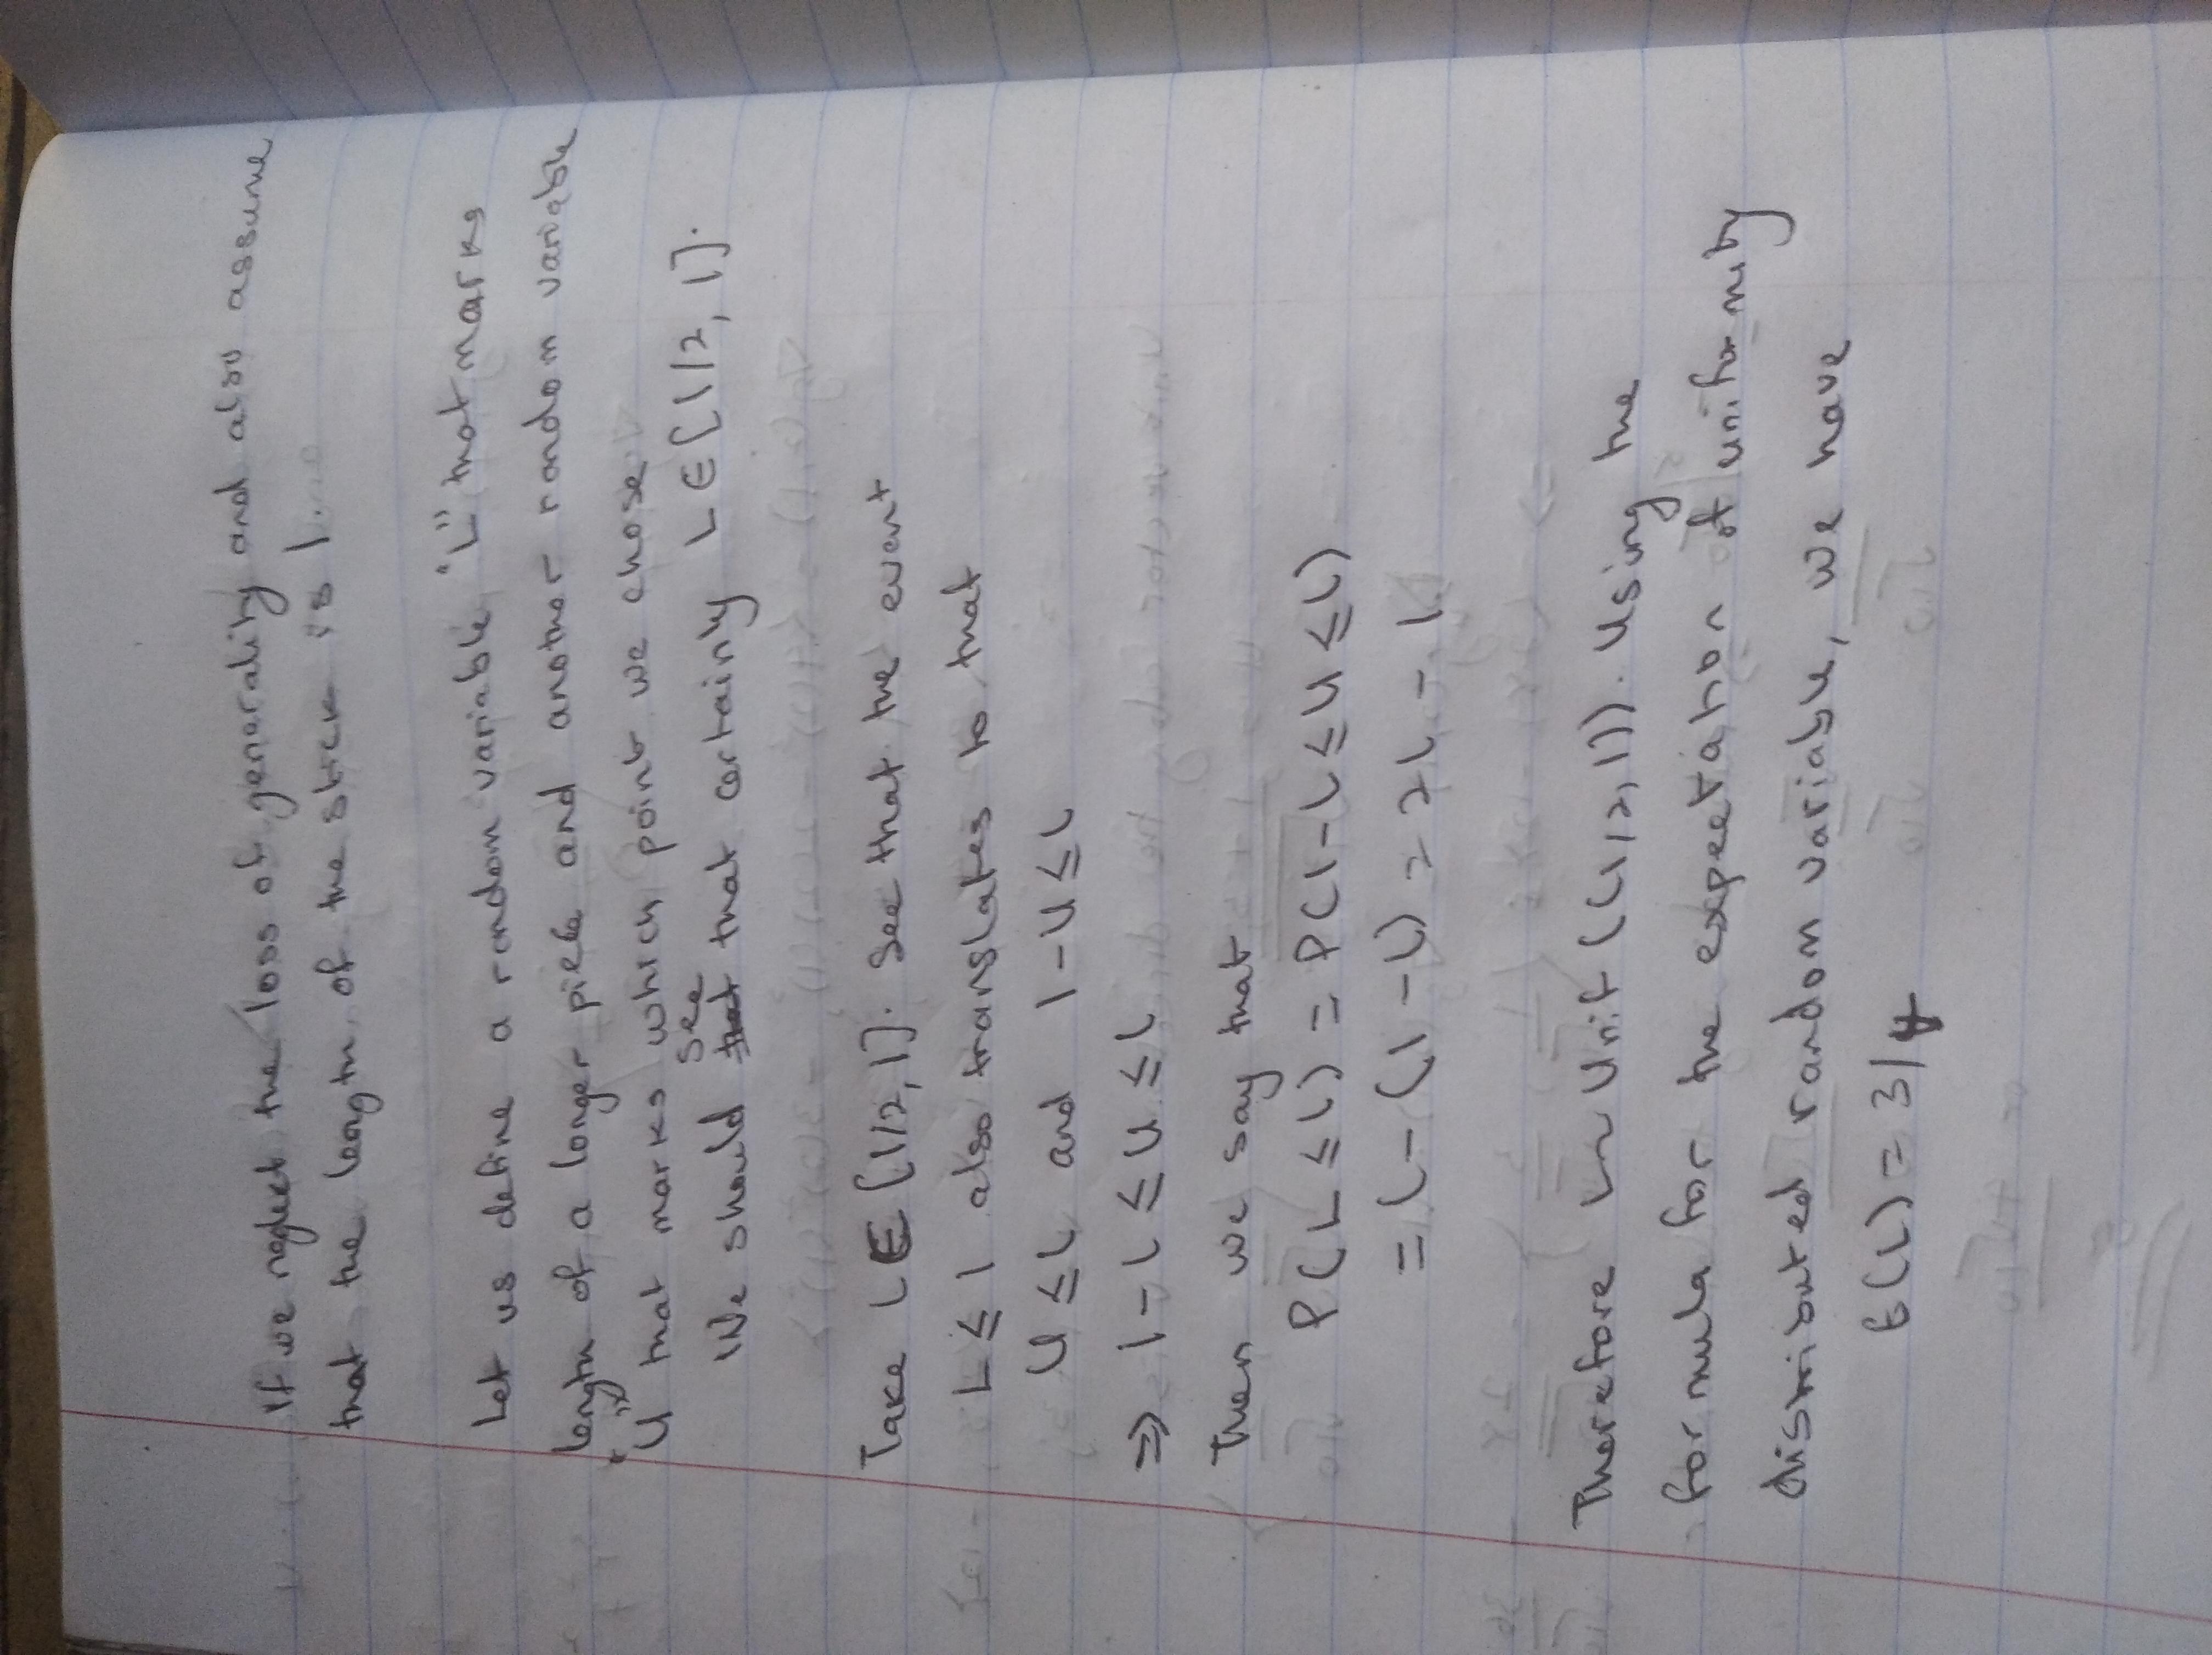 If we neglect the loss of generality and also assume
that the length of the stick is 1.
Let us define a random variable "L" that marks
length of a longer piele and another random variable
"U" that marks which point we chose
We should see that certainly L ∈ [1/2, 1].
Take l ∈ [1/2, 1]. See that the event
L ≤ l also translates to that
U ≤ l and 1-U ≤ l
⇒ 1-l ≤ U ≤ l
Then we say that
P(L ≤ l) = P(1-l ≤ U ≤ l)
= l-(1-l) = 2l-1
Therefore L~Unif((1/2,1)). Using the
formula for the expectation of uniformity
distributed random variable, we have
E(L) = 3/4